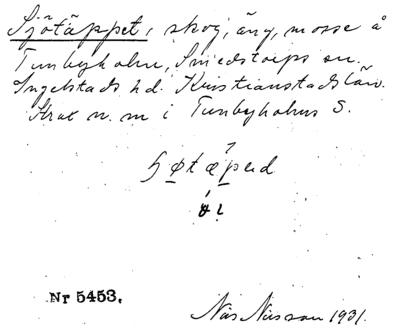 Sjötäppet, skog, äng, mosse å
Tunbyholm, Smedstorps sn.
Ingelstads hd. Kristianstads län.
Strax n. m i Tunbyholms S.
Nr 5453.
Nils Nilsson 1931.